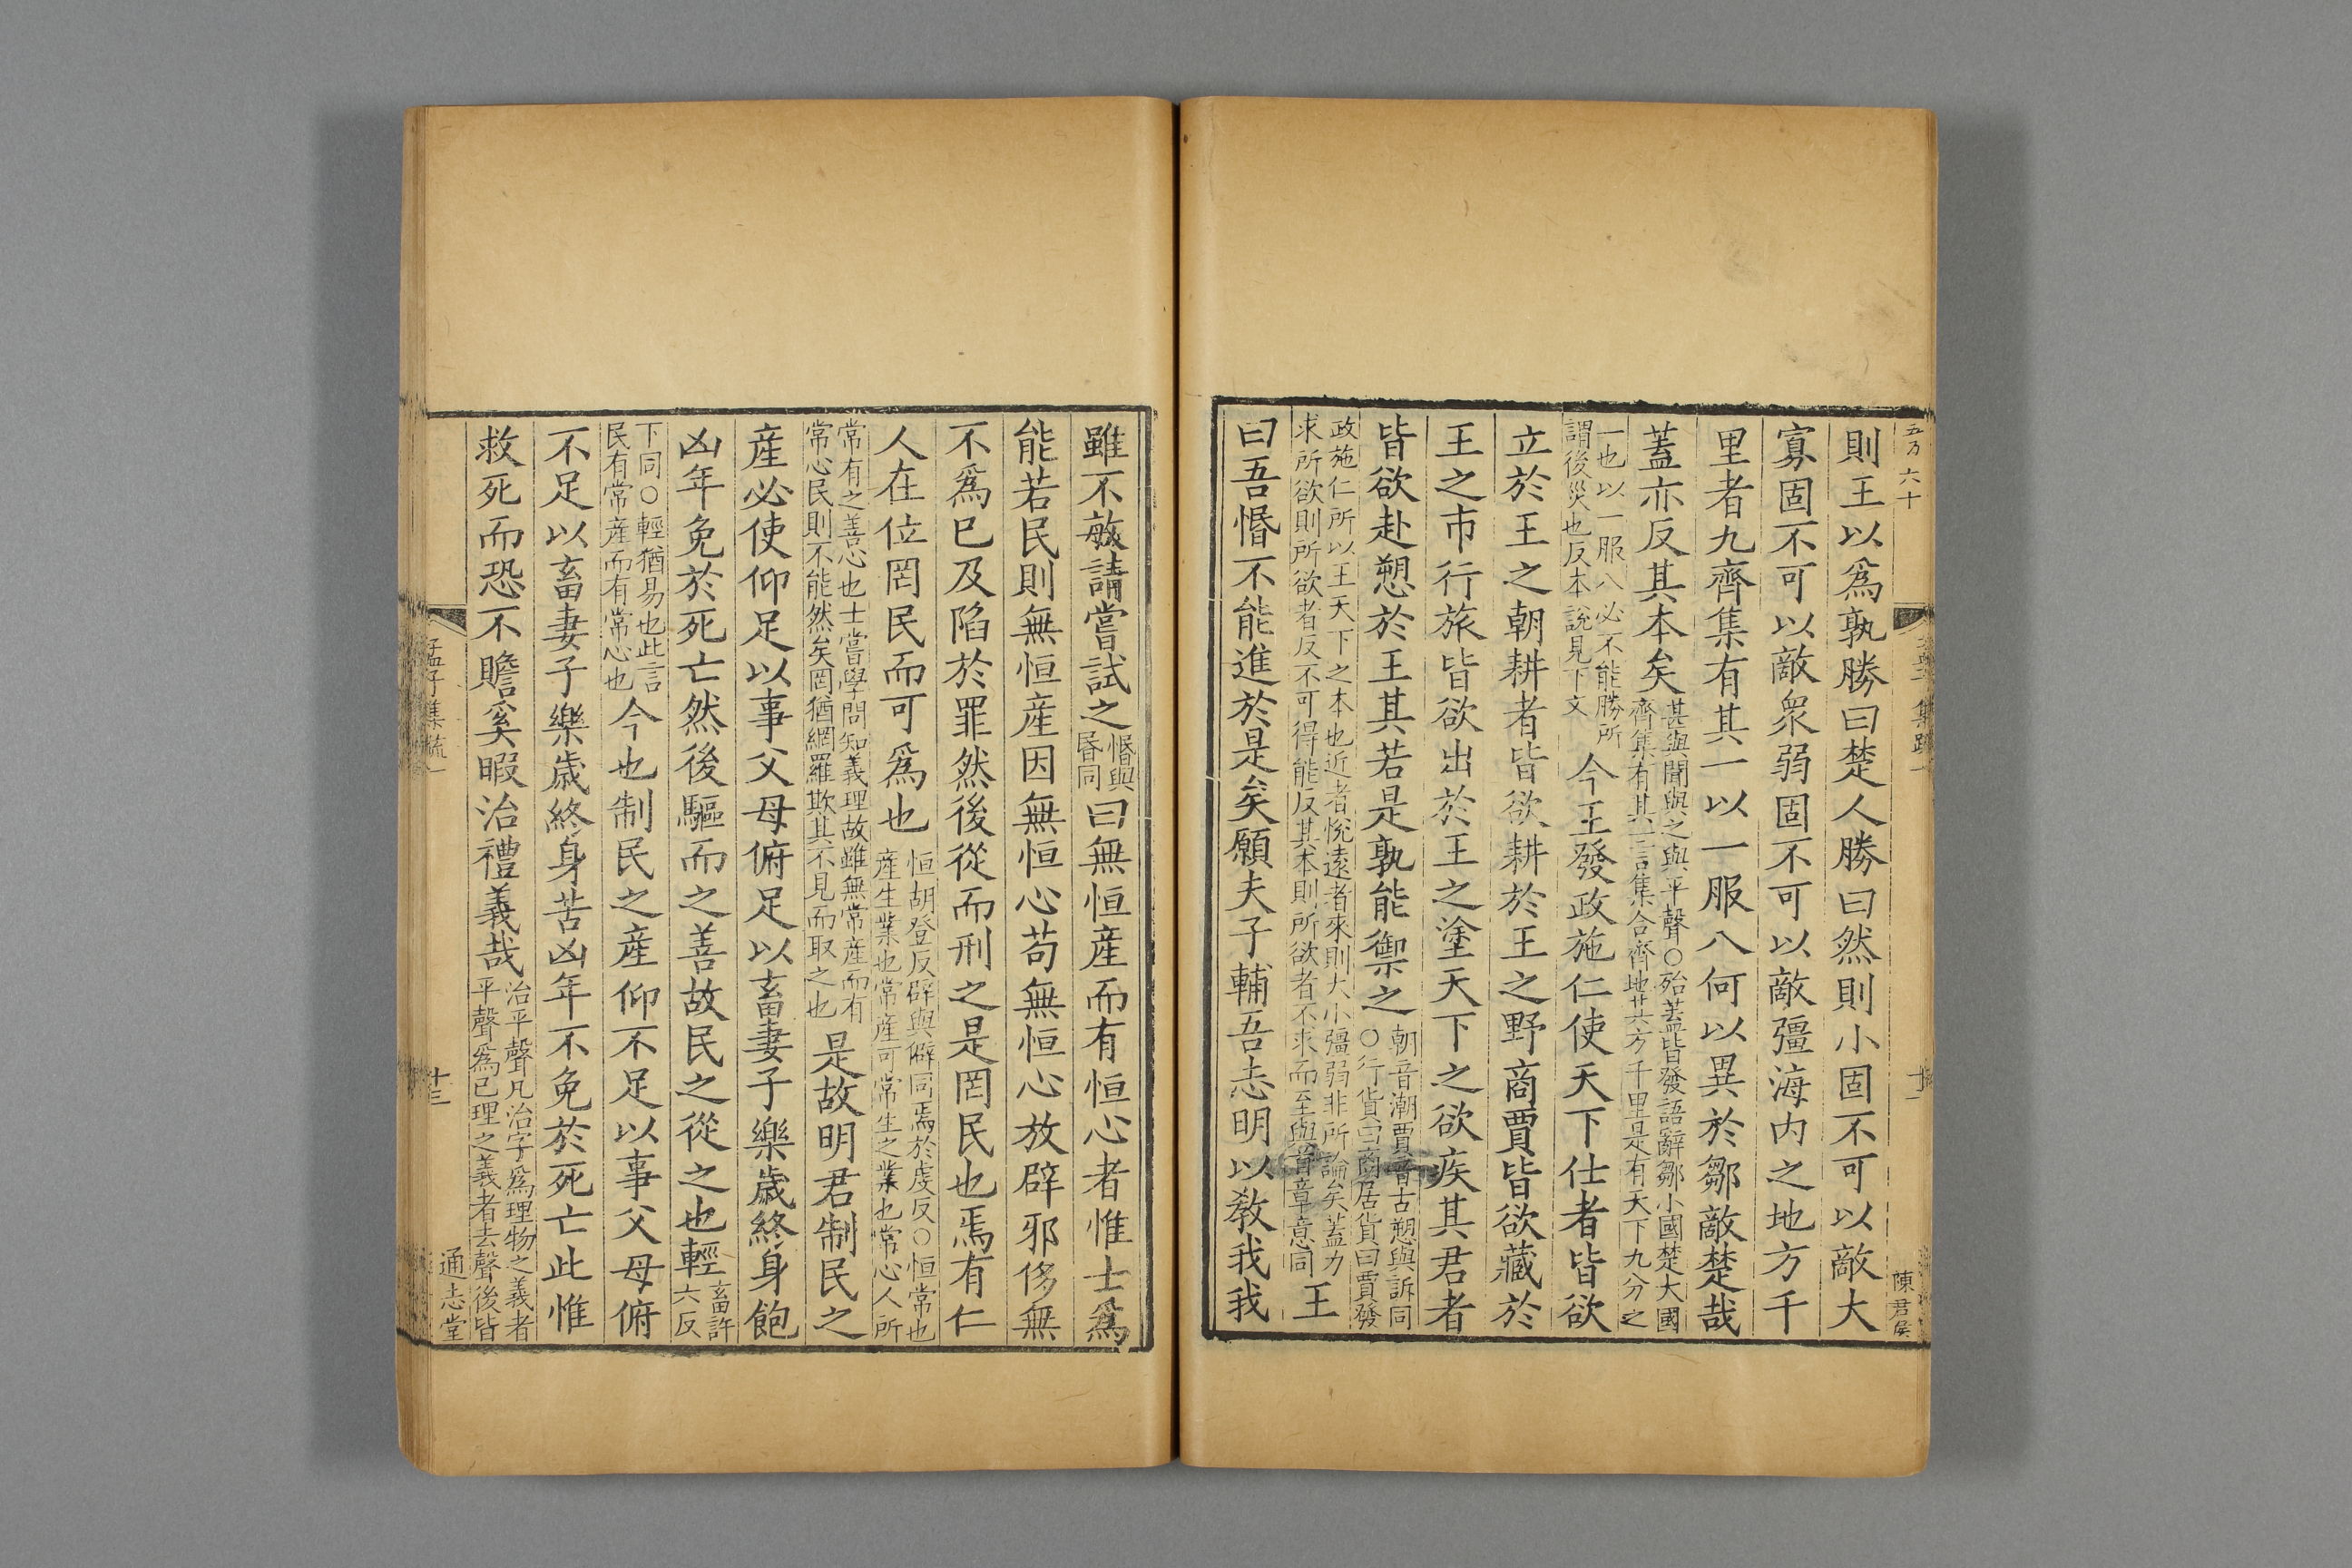 五万六十
陳君侯
則王以爲孰勝曰楚人勝曰然則小固不可以敵大
寡固不可以敵衆弱固不可以敵彊海内之地方千
里者九齊集有其一以一服八何以異於鄒敵楚哉
蓋亦反其本矣甚與聞與之與平聲○殆蓋皆發語辭鄒小國楚大國
齊集有其一言集合齊地其方千里是有天下九分之
一也以一服八必不能勝所
謂後災也反本說見下文今王發政施仁使天下仕者皆欲
立於王之朝耕者皆欲耕於王之野商賈皆欲藏於
王之市行旅皆欲出於王之塗天下之欲疾其君者
皆欲赴愬於王其若是孰能禦之朝音潮賈音古愬與訴同
○行貨曰商居貨曰賈發
政施仁所以王天下之本也近者悅遠者來則大小彊弱非所論矣蓋力
求所欲則所欲者反不可得能反其本則所欲者不求而至與首章意同王
曰吾惛不能進於是矣願夫子輔吾志明以敎我我
雖不敏請嘗試之惛與
昬同曰無恒産而有恒心者惟士爲
能若民則無恒産因無恒心苟無恒心放辟邪侈無
不爲已及陷於罪然後從而刑之是罔民也焉有仁
人在位罔民而可爲也恒胡登反辟與僻同焉於虔反○恒常也
産生業也常産可常生之業也常心人所
常有之善心也士嘗學問知義理故雖無常産而有
常心民則不能然矣罔猶網羅欺其不見而取之也是故明君制民之
産必使仰足以事父母俯足以畜妻子樂歲終身飽
凶年免於死亡然後驅而之善故民之從之也輕畜許
六反
下同○輕猶易也此言
民有常産而有常心也今也制民之産仰不足以事父母俯
不足以畜妻子樂歲終身苦凶年不免於死亡此惟
救死而恐不贍奚暇治禮義哉治平聲凡治字爲理物之義者
平聲爲已理之義者去聲後皆
孟子集疏一
十三
通志堂